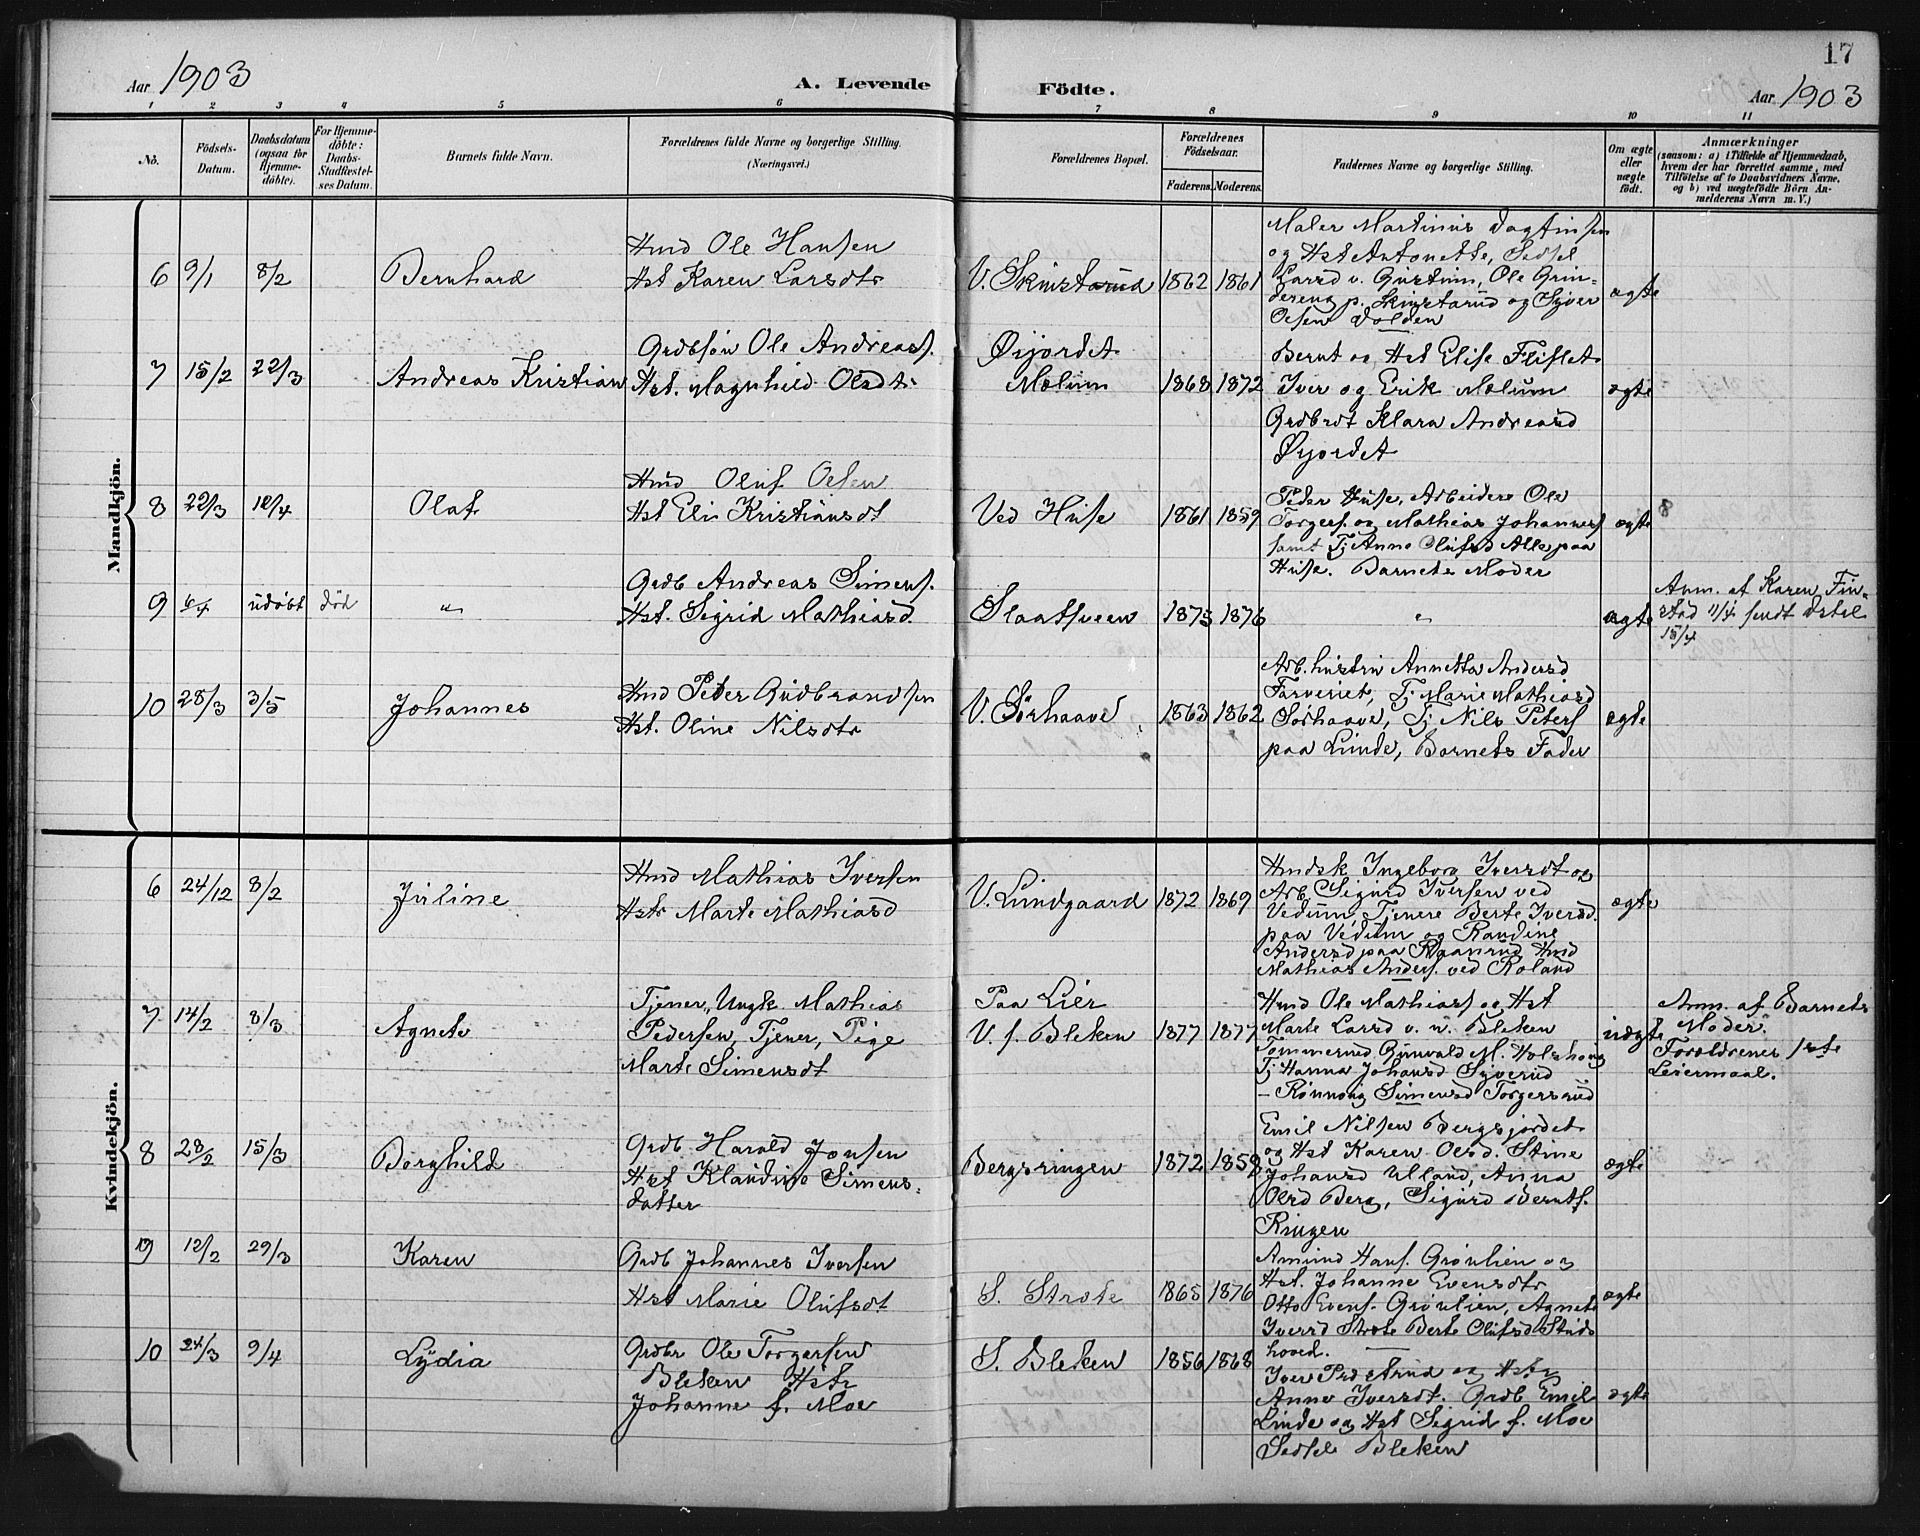 17
Aar 1903
A. Levende Födte.
Aar 1903
1 2 3 4 5 6 7 8 9 10 11
No.
Födsels-
Datum.
Daabsdatum
(ogsaa for
Hjemme-
döbte).
For Hjemme-
döbte:
Daabs-
Stadfæstel-
ses Datum.
Barnets fulde Navn.
Forældrenes fulde Navne og borgerlige Stilling.
(Næringsvei.)
Forældrenes Bopæl.
Forældrenes
Födselsaar.
Faderens. Moderens.
Faddernes Navne og borgerlige Stilling.
Om ægte
eller
uægte
födt.
Anmærkninger
(saasom: a) i Tilfælde af Hjemmedaab,
hvem der har forrettet samme, med
Tilföielse af to Daabsvidners Navne,
og b) ved uægtefödte Börn An-
melderens Navn m. V.)
Mandkjön.
6 9/1 8/2 Bernhard
Hmd Ole Hansen
Hst Karen Larsdtr
V. Skinstarud 1862 1861
Maler Martinus Dagfinsen
og Hst Antonette, Sedsel
Larsd v. Gustum, Ole Grin-
dereng p. Skinstarud og Syver
Olsen Volden
ægte
7 15/2 22/3 Andreas Kristian
Grdbsøn Ole Andreass.
Hst. Magnhild Olsdtr
Øijordet
Mælum 1868 1872
Bernt og Hst Elise Fliflet
Iver og Erik Mælum
Grdbrdt Klara Andreasd
Øijordet
ægte
8 22/3 12/4 Olaf
Hmd Oluf Olsen
Hst Eli Kristiansdt
Ved Huse 1861 1859
Peder Huse, Arbeidere Ole
Torgers. og Mathias Johanness
samt Tj Anne Olufsd Alle paa
Huse. Barnets Moder
ægte 8
9 6/4 udøbt død "
Grdb Andreas Simens.
Hst. Sigrid Mathiasd
Slaatsveen 1875 1876
" ægte
Anm. af Karen Fin-
stad 11/4 sendt Østel
15/4
10 28/3 3/5 Johannes
Hmd Peder Gudbrandsen
Hst. Oline Nilsdtr
V. Sørhaave 1863 1862
Arb.hustru Annette Andersd
Farveriet, Tj Marie Mathiasd
Sørhaave, Tj Nils Peters
paa Linde, Barnets Fader
ægte
Kvindekjön.
6 24/12 8/2 Juline
Hmd Mathias Iversen
Hstr Marte Mathiasd
V. Lundgaard 1872 1869
Hmdsk Ingeborg Iversdt og
Arb. Sigurd Iversen ved
Vedum, Tjenere Berte Iversd.
paa Vedum og Randine
Andersd paa Raanrud Hmd
Mathias Anders. ved Roland
ægte
7 14/2 8/3 Agnete
Tjener, Ungk. Mathias
Pedersen, Tjener, Pige
Marte Simensdt
Paa Lier
V. s. Bleken 1877 1877
Hmd Ole Mathiass og Hst
Marte Larsd v. n. Bleken
Tømmermd Gunvald M. Holshoug
Tj Hanna Johansd Syverud
– Rønnoug Simensd Torgersrud
uægte
Anm. af Barnets
Moder.
Forældrenes 1ste
Leiermaal.
8 28/2 15/3 Borghild
Grdb. Harald Jonsen
Hst Klaudine Simens-
datter
Bergsringen 1872 1859
Emil Nilsen Bergsjordet
og Hst Karen Olsd. Stine
Johansd Ulland, Anna
Olsd Berg, Sigurd Bernts.
Ringen
ægte
9 12/2 29/3 Karen
Grdb Johannes Iversen
Hst Marie Olufsdt
S. Strøte 1865 1876
Amund Hans. Grønlien og
Hst. Johanne Evensdtr
Otto Evens. Grønlien, Agnete
Iversd Strøte Berte Olufsd Studs
hoved.
ægte
10 24/3 9/4 Lydia
Grdbr Ole Torgersen
Bleken Hstr
Johanne f. Moe
S. Bleken 1856 1868
Iver Prdstrud og Hstr
Anne Iversdt. Grdb Emil
Linde og Hst Sigrid f. Moe
Sedsel Bleken
ægte